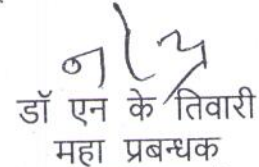 डॉ एन के तिवारी
महा प्रबन्धक